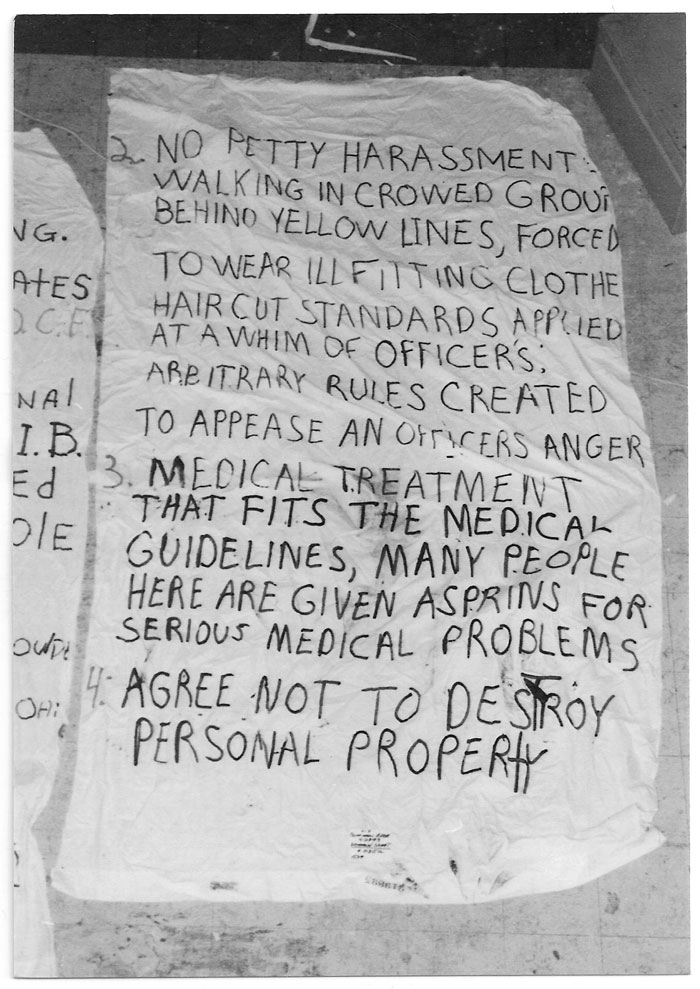 2. NO PETTY HARASSMENT:
WALKING IN CROWED GROUP
BEHIND YELLOW LINES, FORCED
TO WEAR ILL FITTING CLOTHE
HAIR CUT STANDARDS APPLIED
AT A WHIM OF OFFICER'S;
ARBITRARY RULES CREATED
TO APPEASE AN OFFICERS ANGER
3. MEDICAL TREATMENT
THAT FITS THE MEDICAL
GUIDELINES, MANY PEOPLE
HERE ARE GIVEN ASPRINS FOR
SERIOUS MEDICAL PROBLEMS
4. AGREE NOT TO DESTROY
PERSONAL PROPERTY
NG.
AtES
NAl
I.B.
Ed
OlE